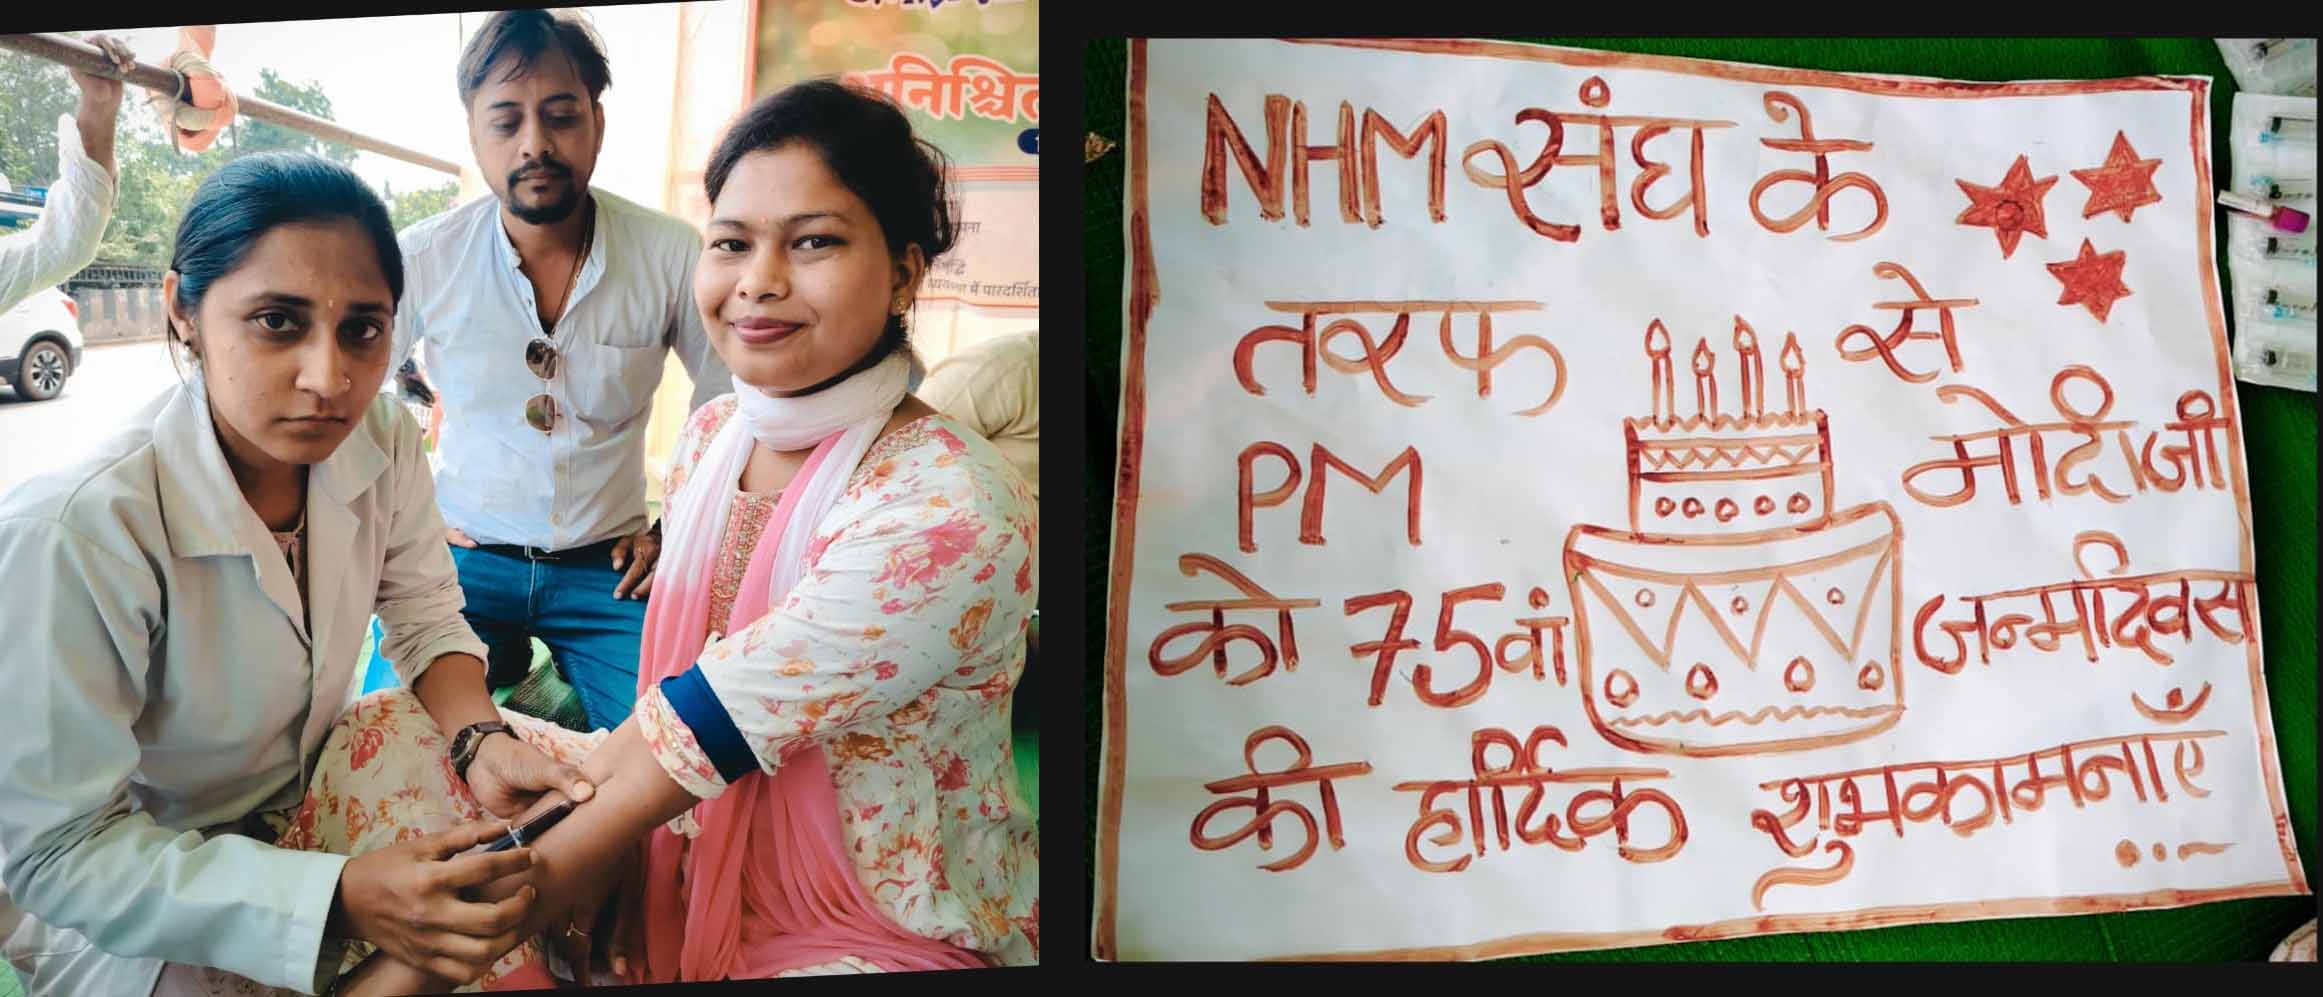 अनिश्चित
व्यवस्था में पारदर्शिता
NHM संघ के
तरफ से
PM मोदीजी
को 75वां जन्मदिवस
की हार्दिक शुभकामनाएँ
...